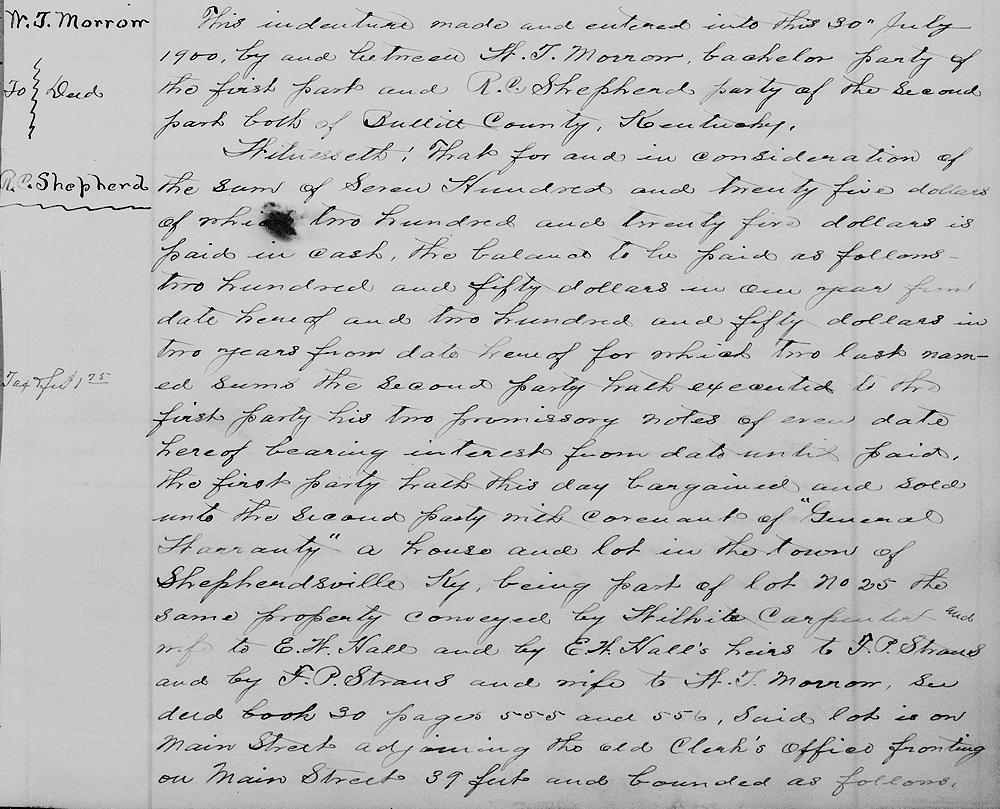 W. T. Morrow
To Deed
R. C. Shepherd
Tax & fee 1.75
This indenture made and entered into this 30" July
1900, by and between W. T. Morrow, bachelor party of
the first part and R. C. Shepherd party of the second
part both of Bullitt County, Kentucky.
Witnesseth: That for and in consideration of
the sum of Seven Hundred and twenty five dollars
of which two hundred and twenty five dollars is
paid in cash, the balance to be paid as follows-
two hundred and fifty dollars in one year from
date hereof and two hundred and fifty dollars in
two years from date hereof for which two last nam-
ed sums the second party hath executed to the
first party his two promissory notes of even date
hereof bearing interest from date until paid,
the first party hath this day bargained and sold
unto the second party with covenant of "General
Warranty" a house and lot in the town of
Shepherdsville Ky, being part of lot No 25 the
same property conveyed by Wilhite Carpenter and
wife to E. W. Hall and by E. W. Hall's heirs to F. P. Straus
and by F. P. Straus and wife to W. T. Morrow, see
deed book 30 pages 555 and 556, Said lot is on
Main Street adjoining the old Clerk's office fronting
on Main Street 39 feet and bounded as follows.